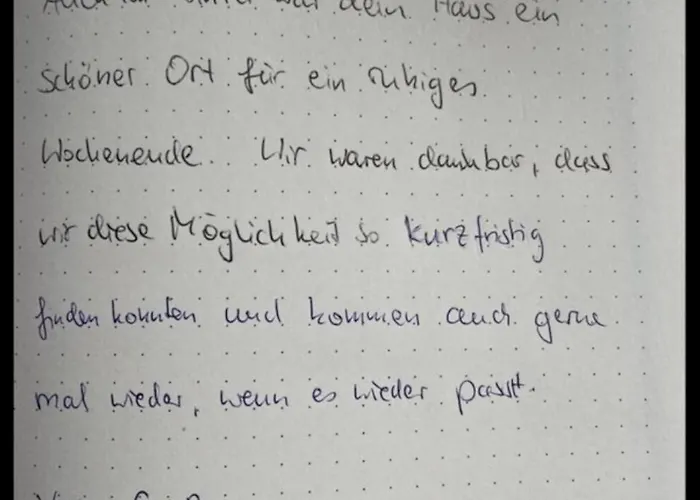 Auch im Winter war dein Haus ein
schöner Ort für ein ruhiges
Wochenende. Wir waren dankbar, dass
wir diese Möglichkeit so kurzfristig
finden konnten und kommen auch gerne
mal wieder, wenn es wieder passt.